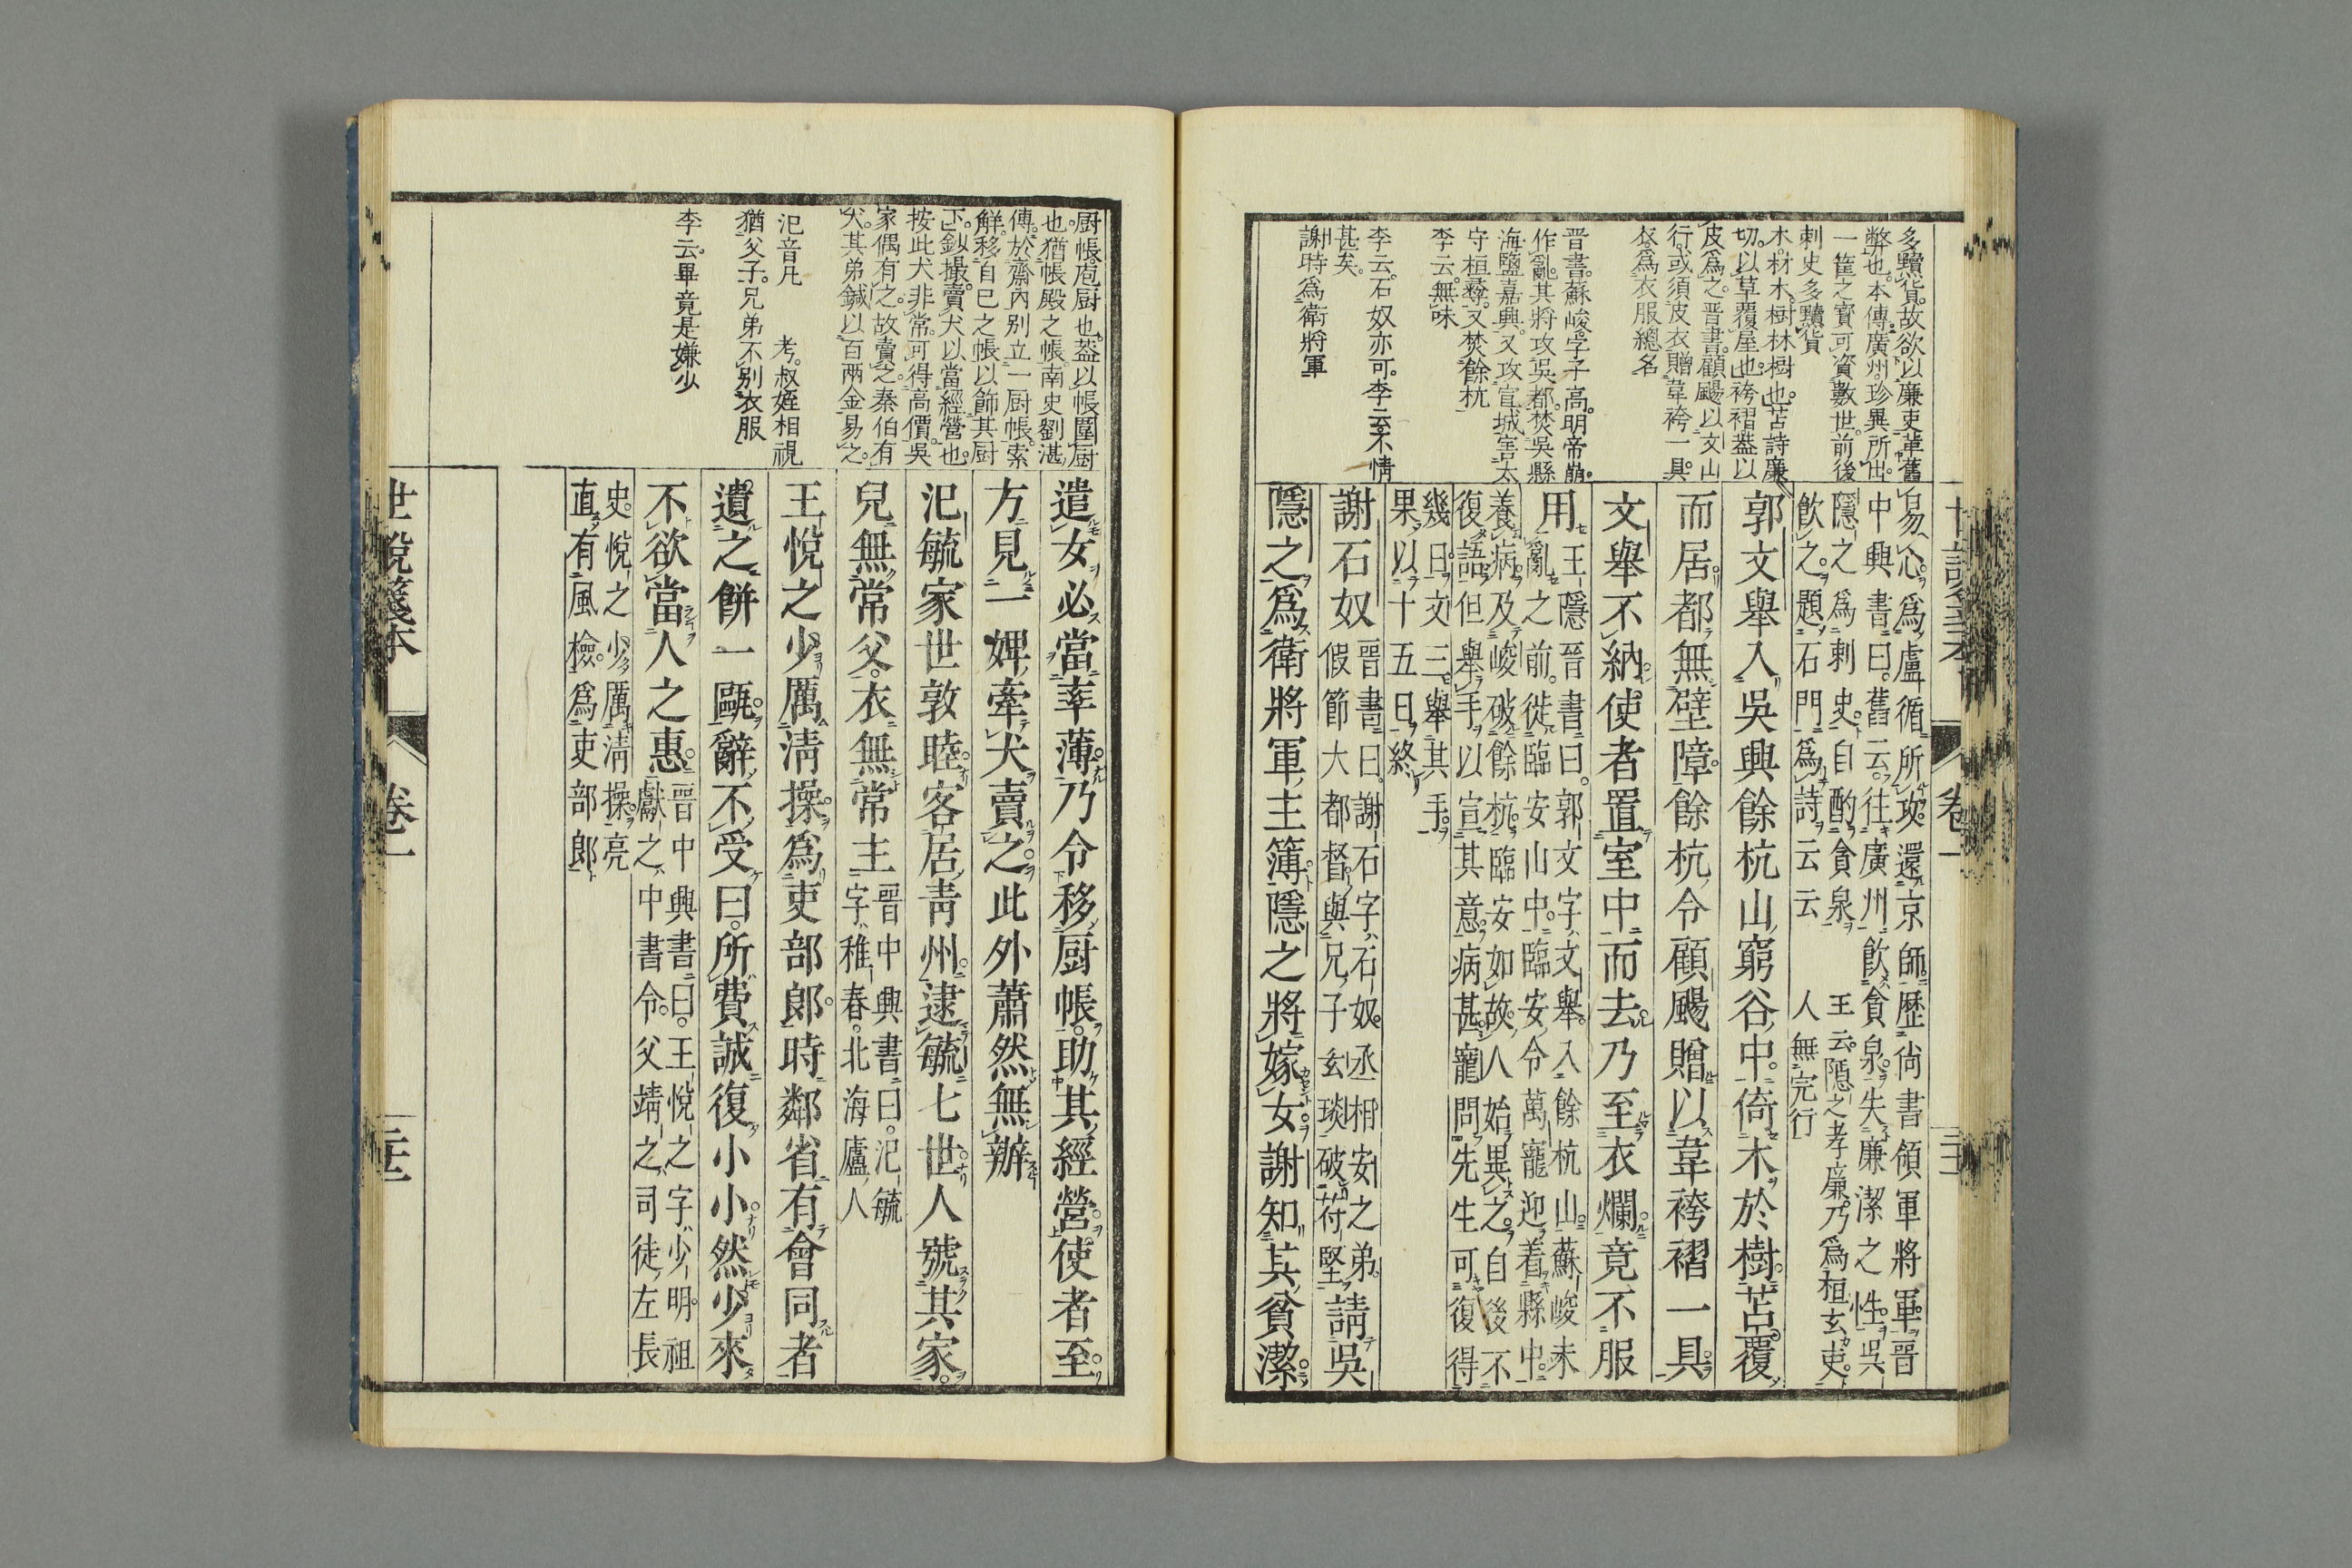 多黷貨故欲以廉吏革舊
弊也本傳廣州珍異所出
一筐之寶可資數世前後
刺史多黷貨
木材木樹林樹也苫詩廉
切以草覆屋也袴褶葢以
皮爲之晋書顧颺以文山
行或須皮衣贈韋袴一具
衣爲衣服總名
晋書蘇峻字子高明帝崩
作亂其將攻吳都焚吳縣
海鹽嘉興又攻宣城害太
守桓彞又焚餘杭
李云無味
李云石奴亦可李云不情
甚矣
謝時爲衛將軍
易心爲盧循所攻還京師歷尙書領軍將軍晋
中興書曰舊云往廣州飲貪泉失廉潔之性吳
隱之爲刺史自酌貪泉王云隱之孝廉乃爲桓玄吏
飲之題石門爲詩云云人無完行
郭文舉入吳興餘杭山窮谷中倚木於樹苫覆
而居都無壁障餘杭令顧颺贈以韋袴褶一具
文舉不納使者置室中而去乃至衣爛竟不服
用王隱晋書曰郭文字文舉入餘杭山蘇峻未
亂之前徙臨安山中臨安令萬寵迎着縣中
養病及峻破餘杭臨安如故人始異之自後不
復語但舉手以宣其意病甚寵問先生可復得
幾日文三舉其手
果以十五日終
謝石奴晋書曰謝石字石奴丞相安之弟
假節大都督與兄子玄琰破苻堅請吳
隱之爲衛將軍主簿隱之將嫁女謝知其貧潔
世說箋本 卷一
厨帳庖厨也葢以帳圍厨
也猶帳殿之帳南史劉湛
傳於齋內别立一厨帳索
觧移自巳之帳以飾其厨
下鈔撮賣犬以當經營也
按此犬非常可得高價吳
家偶有之故賣之秦伯有
犬其弟鍼以百兩金易之
氾音凡 考叔姪相視
猶父子兄弟不别衣服
李云畢竟是嫌少
遣女必當率薄乃令移厨帳助其經營使者至
方見一婢牽犬賣之此外蕭然無辦
氾毓家世敦睦客居靑州逮毓七世人號其家
兒無常父衣無常主晋中興書曰氾毓
字稚春北海廬人
王悅之少厲淸操爲吏部郞時鄰省有會同者
遺之餅一甌辭不受曰所費誠復小小然少來
不欲當人之惠晋中興書曰王悅之字少明祖
獻之中書令父靖之司徒左長
史悅之少厲淸操亮
直有風檢爲吏部郞
世說箋本 卷一